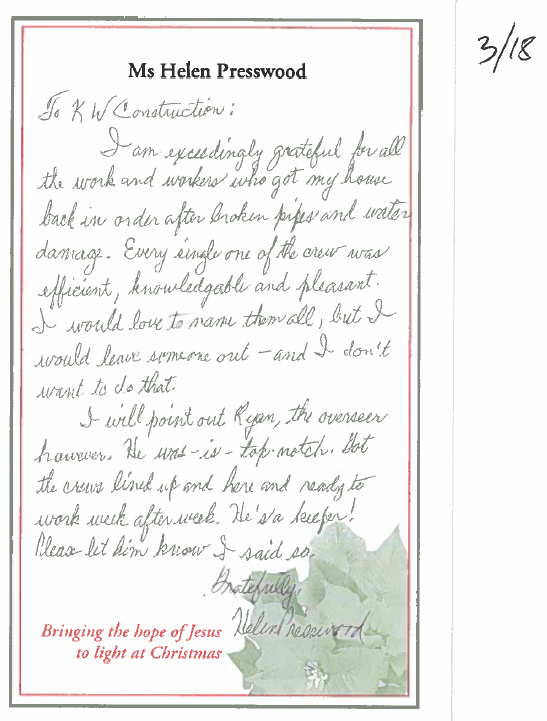 3/18
Ms Helen Presswood
To K W Construction:
I am exceedingly grateful for all
the work and workers who got my house
back in order after broken pipes and water
damage. Every single one of the crew was
efficient, knowledgable and pleasant.
I would love to name them all, but I
would leave someone out – and I don't
want to do that.
I will point out Ryan, the overseer
however. He was – is – top-notch. Got
the crews lined up and here and ready to
work week after week. He's a keeper!
Please let him know I said so.
Gratefully,
Helen Presswood
Bringing the hope of Jesus
to light at Christmas